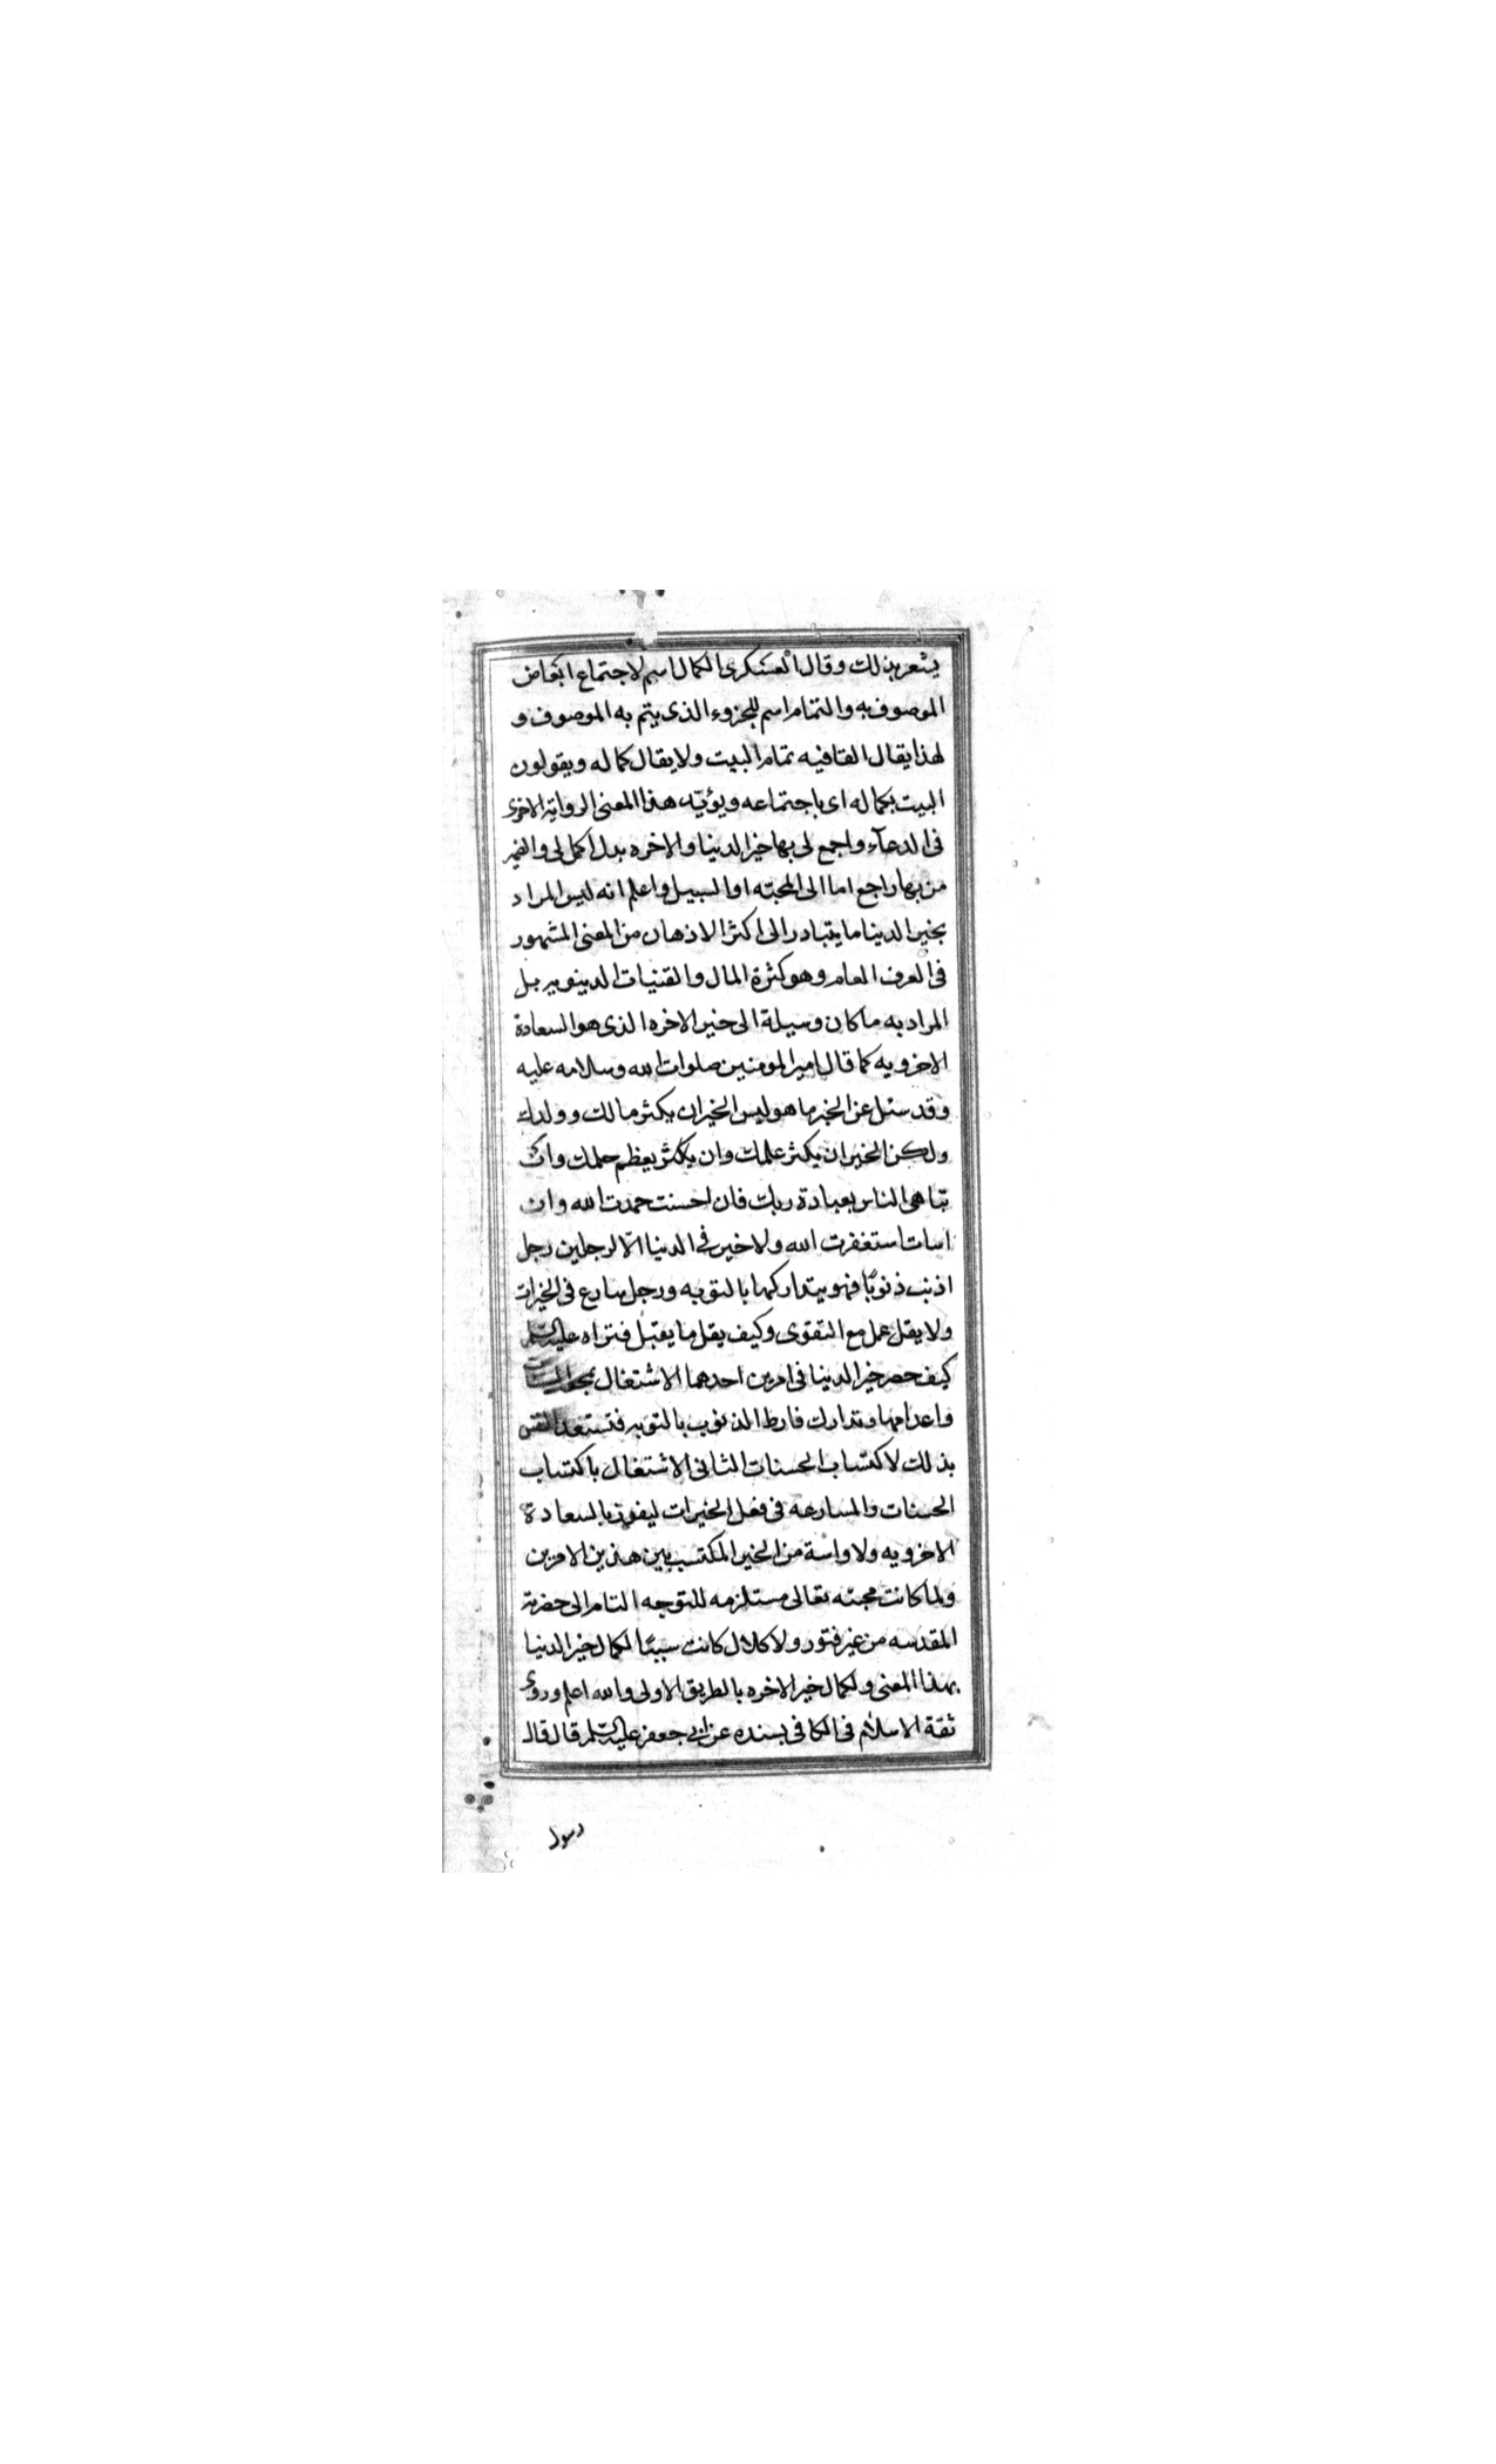 يشعر بذلك وقال العسكرى الكمال اسم لاجتماع ابعاض
الموصوف به والتمام اسم للجزوء الذى يتم به الموصوف و
لهذا يقال القافيه تمام البيت ولا يقال كماله ويقولون
البيت بكماله اى باجتماعه ويؤيّد هذا المعنى الرواية الاخرى
فى الدعآء واجمع لى بها خير الدنيا والاخره بدل اكمل لى والضمير
من بها راجع اما الى المحبته او السبيل واعلم انه ليس المراد
بخير الدنيا ما يتبادر الى اكثر الاذهان من المعنى المشهور
فى العرف العام وهو كثرة المال والقنيات الدينويه بل
المراد به ما كان وسيلة الى خير الاخره الذى هو السعادة
الاخرويه كما قال امير المومنين صلوات الله وسلامه عليه
وقد سئل عن الخير ما هو ليس الخير ان يكثر مالك وولدك
ولكن الخير ان يكثر علمك وان يكثر يعظم حلمك وان
تباهى الناس بعبادة ربك فان احسنت حمدت الله وان
اسات استغفرت الله ولا خير فى الدنيا الّا لرجلين رجل
اذنب ذنوبًا فهو يتداركها بالتوبه ورجل سارع فى الخيرات
ولا يقل عمل مع التقوى وكيف يقل ما يقبل فتراه عليه السلم
كيف حصر خير الدنيا فى امرين احدهما الاشتغال بمحو السيئات
واعدامها وتدارك فارط الذنوب بالتوبه فتستعد النفس
بذلك لاكتساب الحسنات الثانى الاشتغال باكتساب
الحسنات والمسارعه فى فعل الخيرات ليفوز بالسعادة
الاخرويه ولا واسة من الخير المكتسب بين هذين الامرين
ولما كانت محبته تعالى مستلزمه للتوجه التام الى حضرته
المقدسه من غير فتور ولا كلال كانت سببًا لكمال خير الدنيا
بهذا المعنى ولكمال خير الاخره بالطريق الاولى والله اعلم وروى
ثقة الاسلام فى الكافى بسنده عن ابى جعفر عليه السلم قال قال
رسول